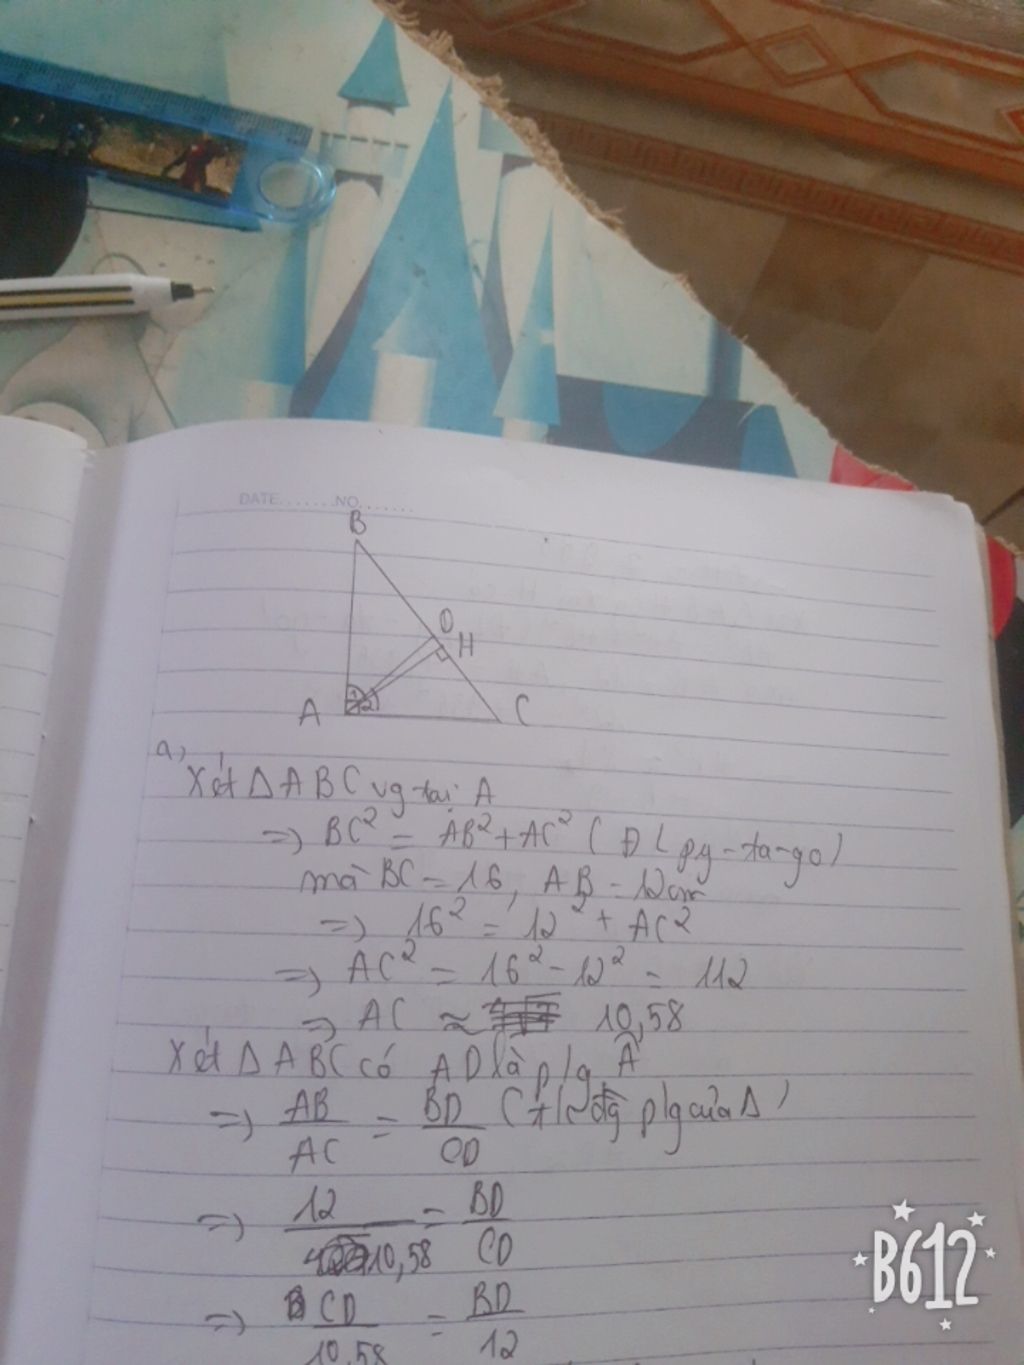 DATE.......NO.......
B
D
H
A
1
2
C
a)
Xét Δ ABC vg tại A
=) BC² = AB² + AC² ( ĐL py-ta-go)
mà BC = 16, AB = 12cm
=) 16² = 12² + AC²
=) AC² = 16² - 12² = 112
=) AC ≈ 10,58
Xét Δ ABC có AD là p/g Â
=) AB/AC = BD/CD (t/c đg p/g của Δ)
=) 12/10,58 = BD/CD
=) CD/10,58 = BD/12
B612